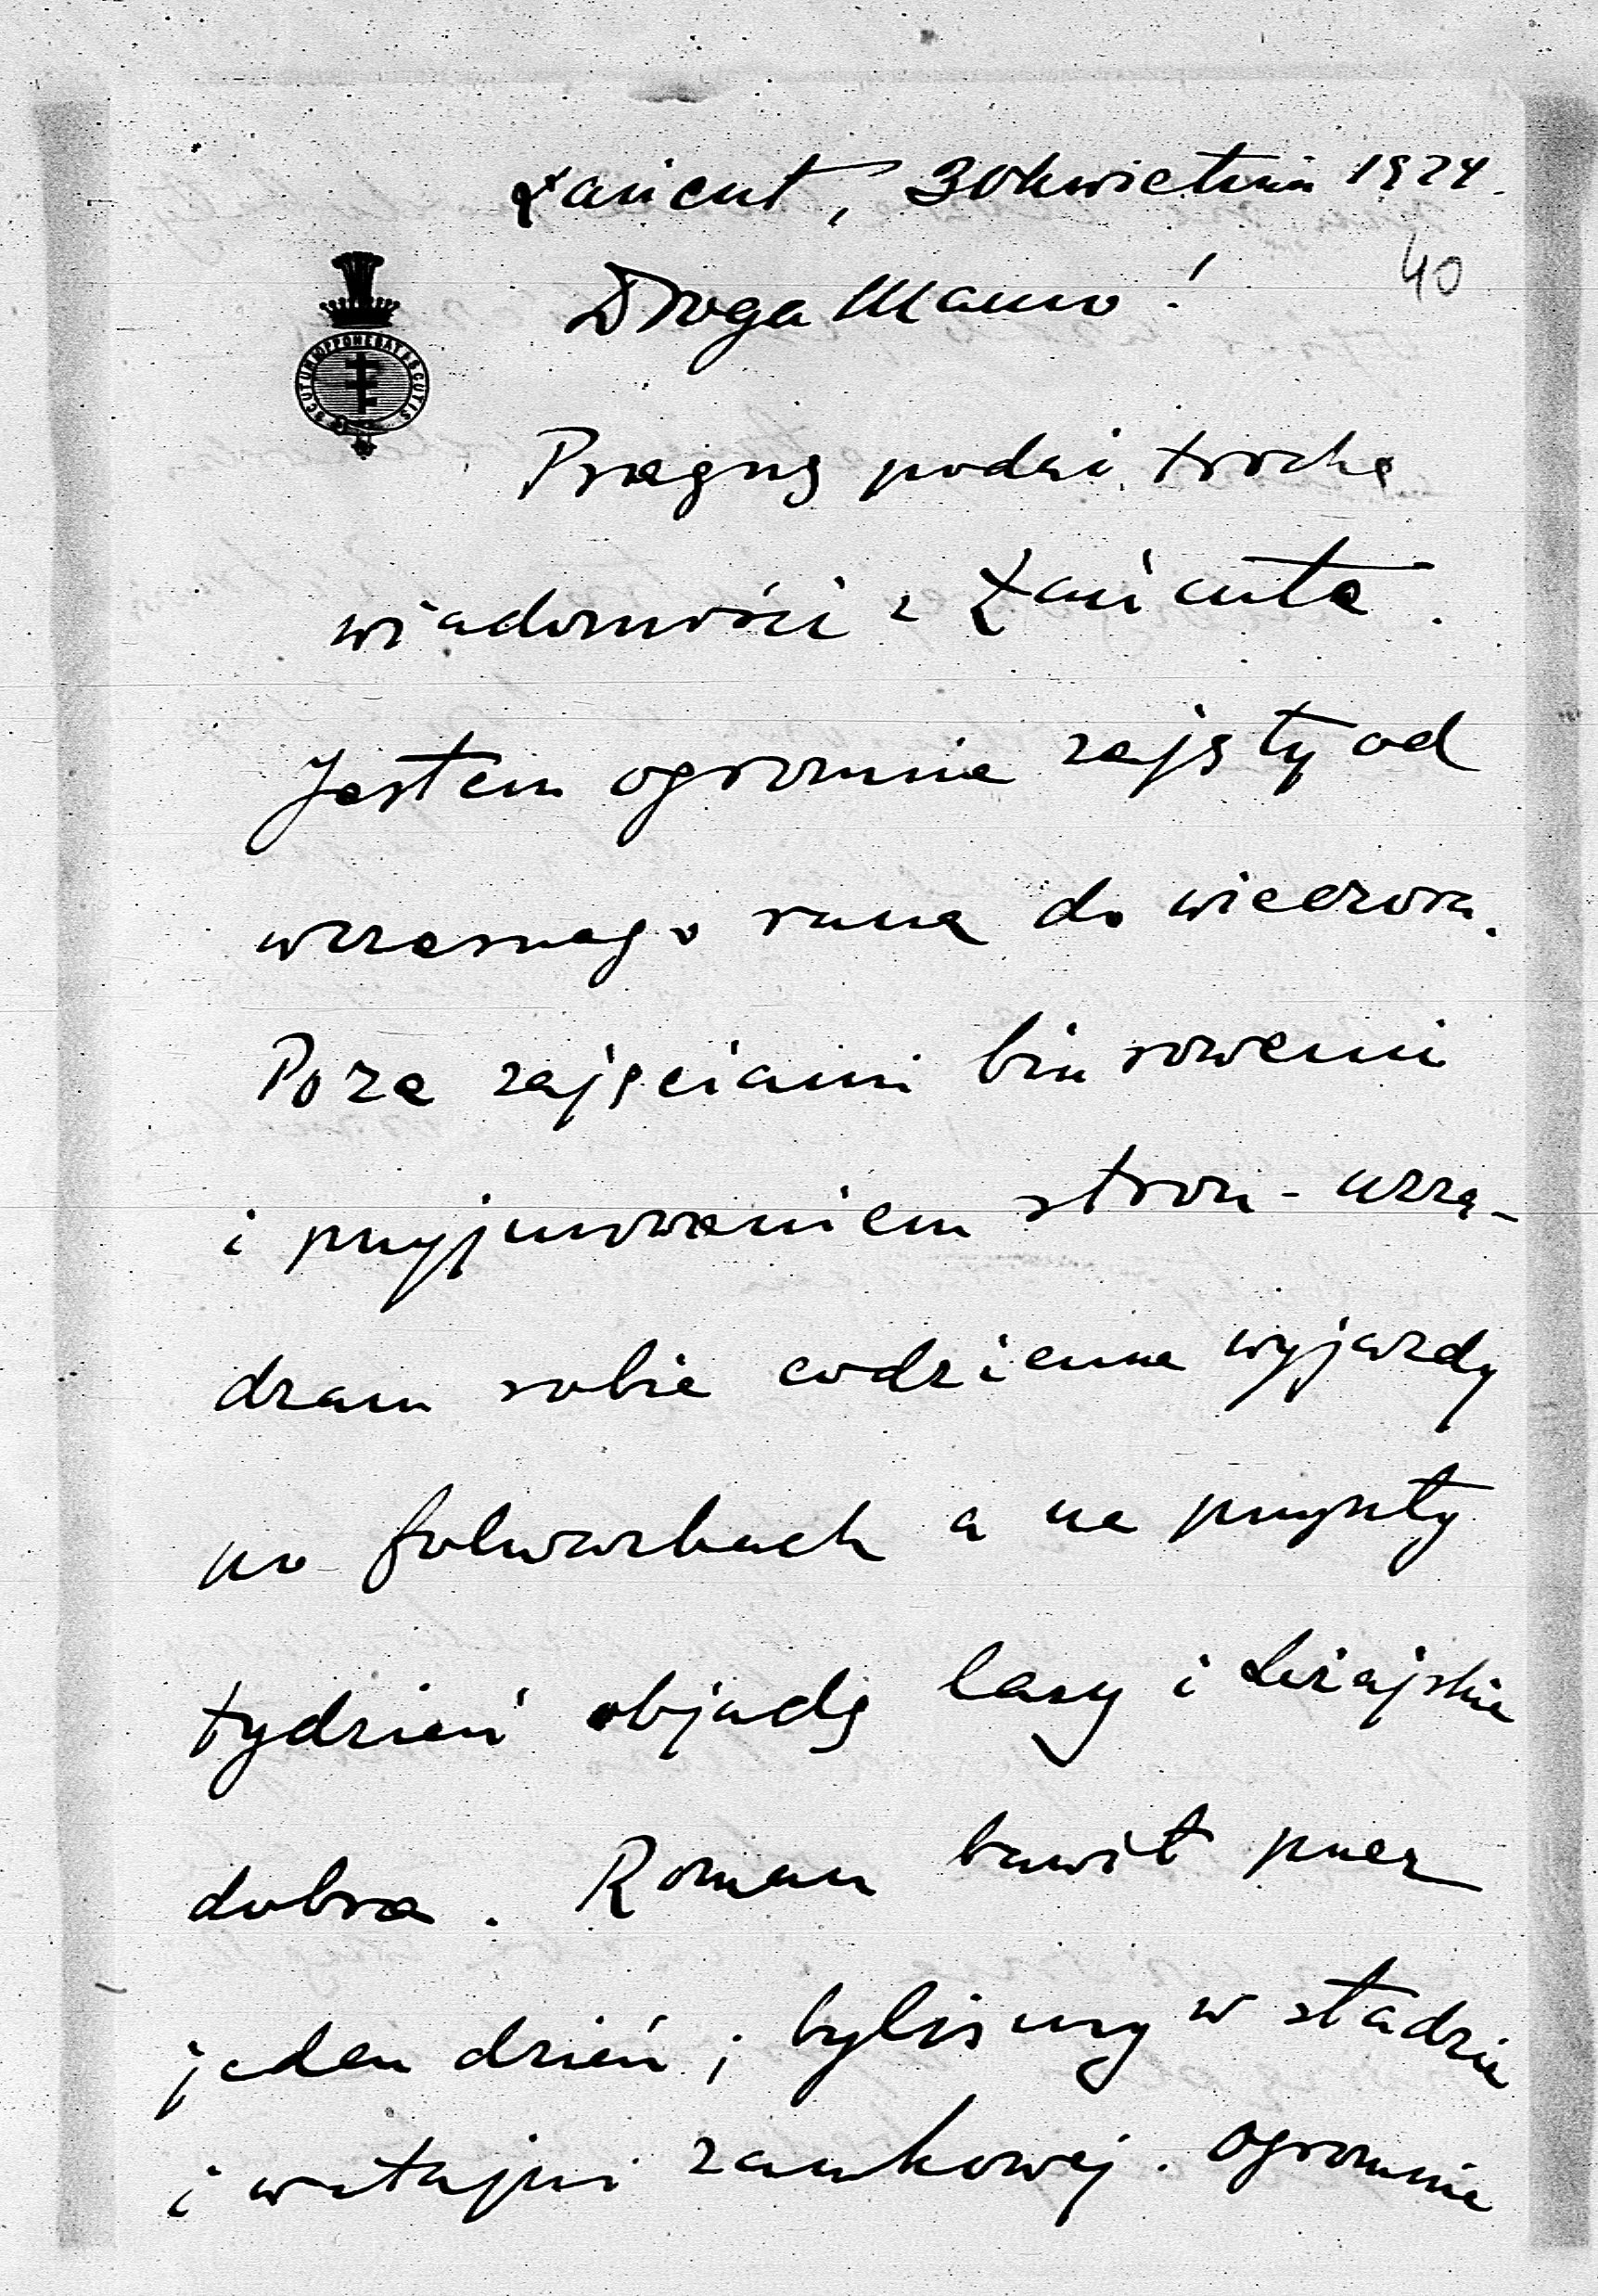 Łańcut, 30 kwietnia 1924.
40
Droga Mamo!
SCUTUM OPPONEBAT SCUTIS
Pragnę podać trochę
wiadomości z Łańcuta.
Jestem ogromnie zajęty od
wczesnego rana do wieczora.
Poza zajęciami biurowemi
i przyjmowaniem stron - urzą-
dzam sobie codzienne wyjazdy
po folwarkach a na przyszły
tydzień objadę lasy i Leżajskie
dobra. Roman bawił przez
jeden dzień; byliśmy w stadzie
i w stajni zamkowej. Ogromnie